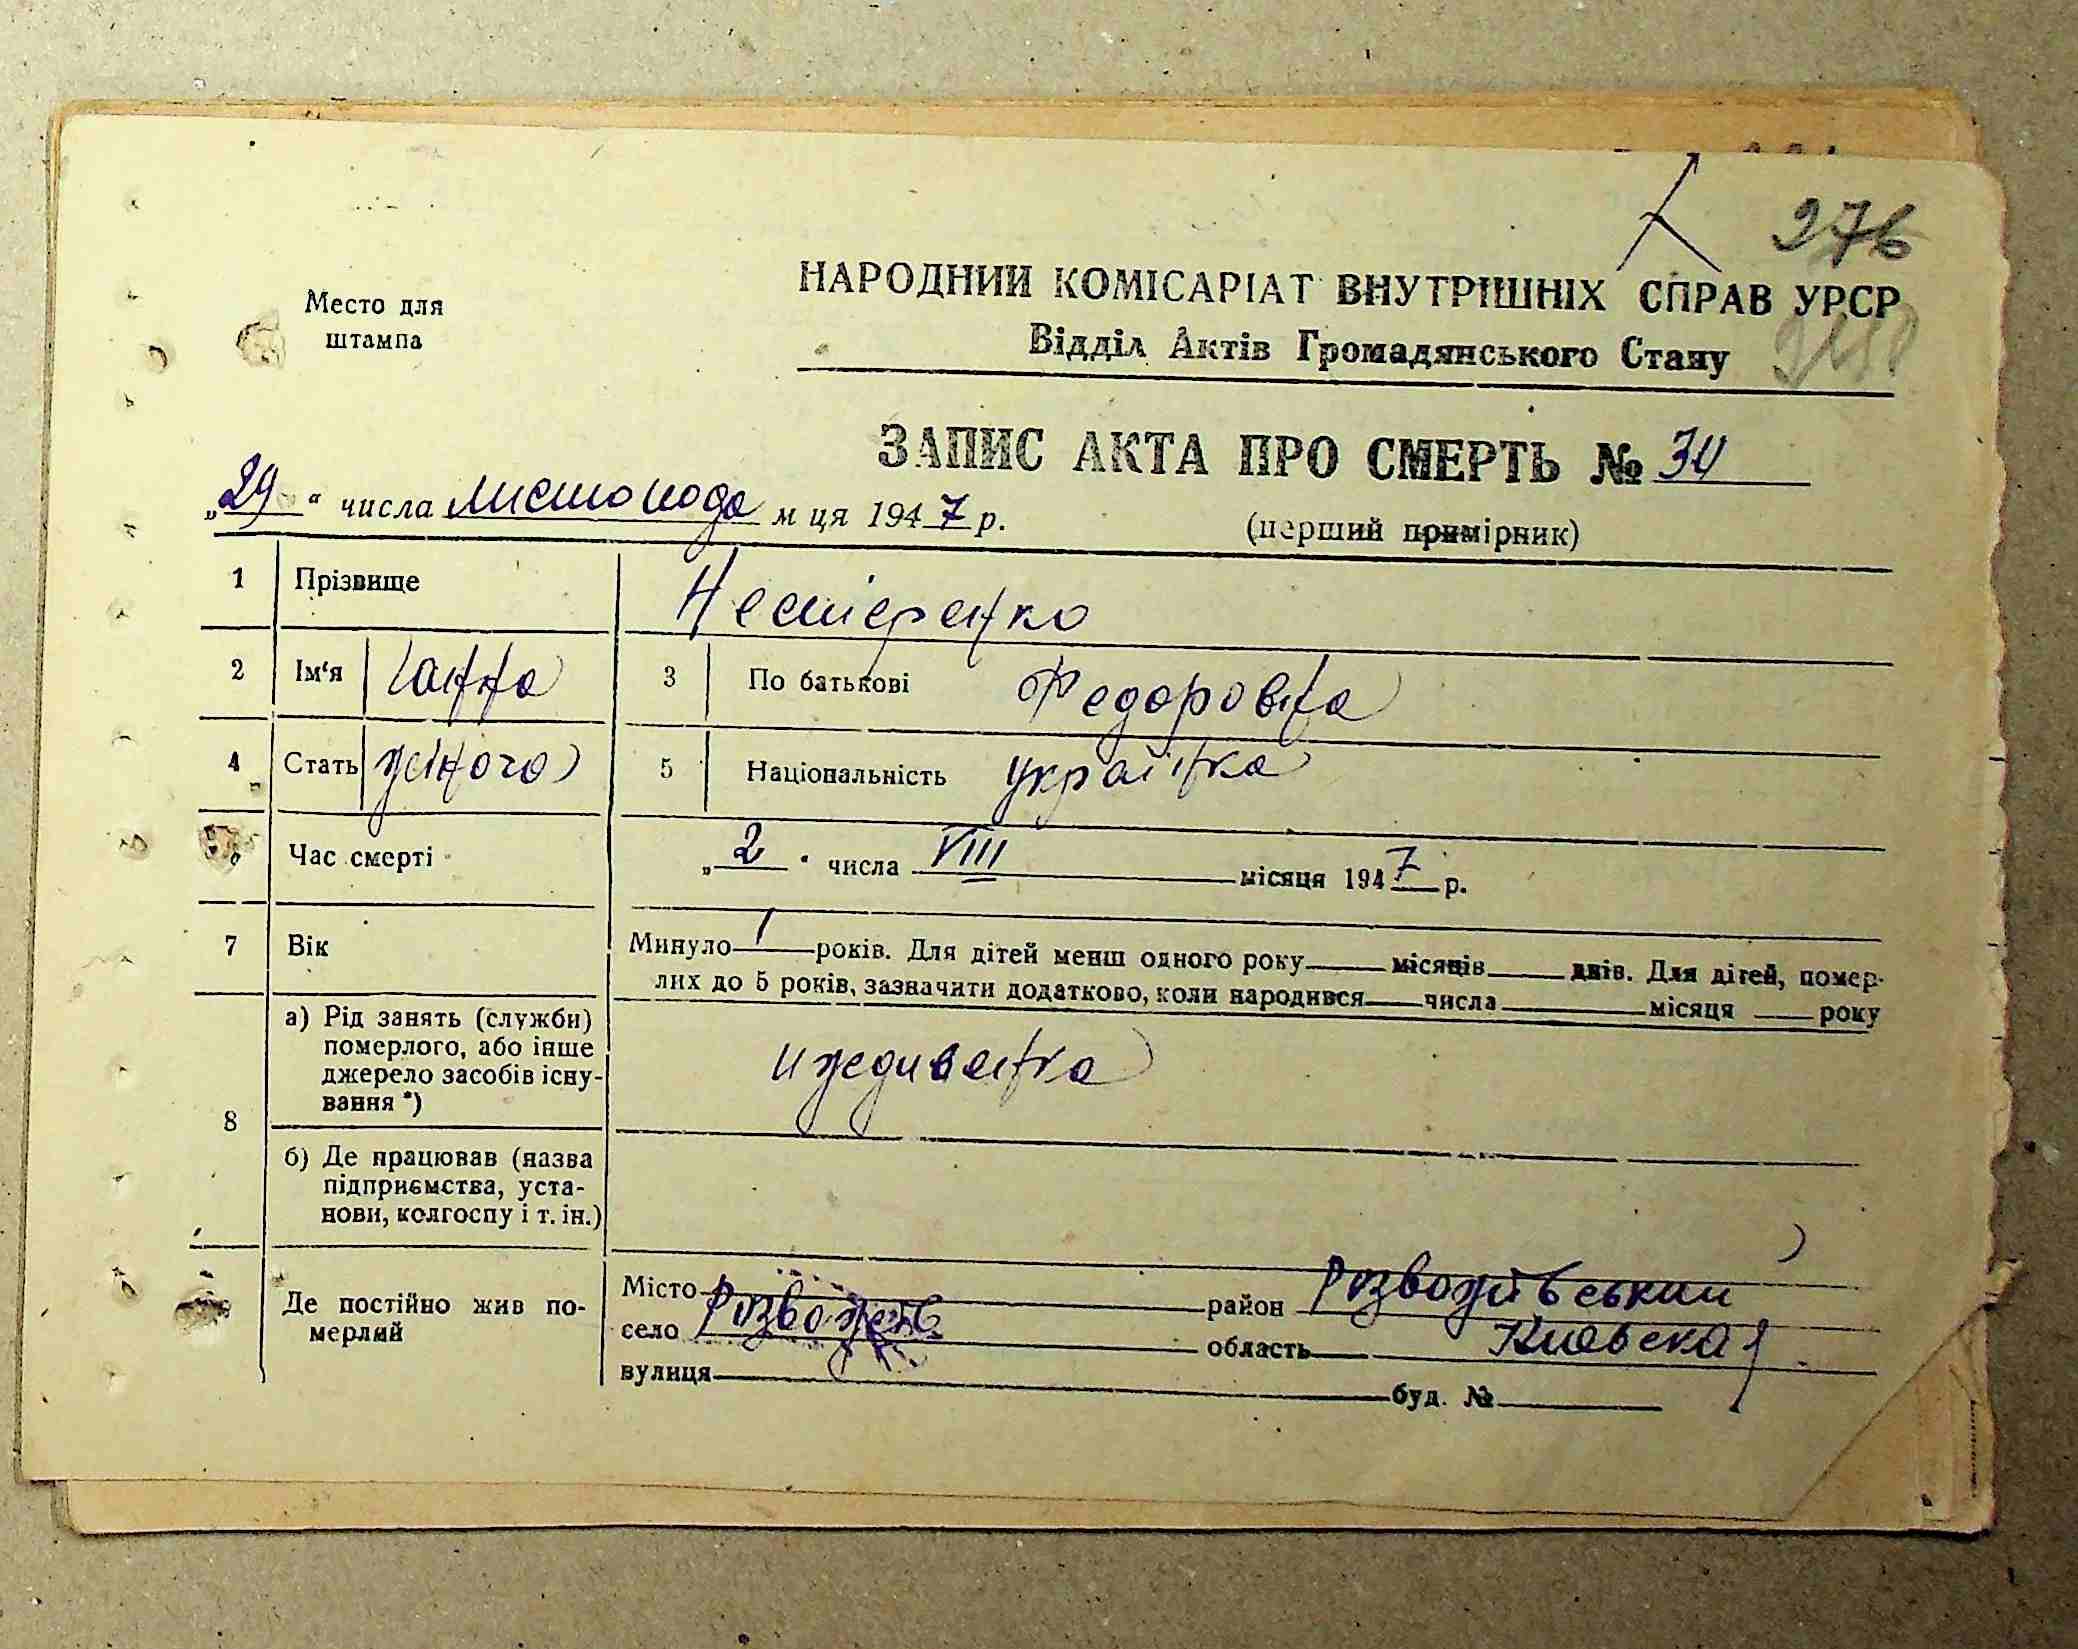 276
Место для
штампа
НАРОДНИЙ КОМІСАРІАТ ВНУТРІШНІХ СПРАВ УРСР
Відділ Актів Громадянського Стану
ЗАПИС АКТА ПРО СМЕРТЬ № 34
„29“ числа листопада м ця 1947 р.
(перший примірник)
1 Прізвище Нестеренко
2 Ім'я Ганна 3 По батькові Федоровна
4 Стать жіноча 5 Національність українка
Час смерті „2“ числа VIII місяця 1947 р.
7 Вік Минуло 1 років. Для дітей менш одного року місяців днів. Для дітей, помер-
лих до 5 років, зазначити додатково, коли народився числа місяця року
8 а) Рід занять (служби)
померлого, або інше
джерело засобів існу-
вання *)
иждивенка
б) Де працював (назва
підприємства, уста-
нови, колгоспу і т. ін.)
Де постійно жив по-
мерлий
Місто район Розважівський
село Розважев область Киевская
вулиця буд. №